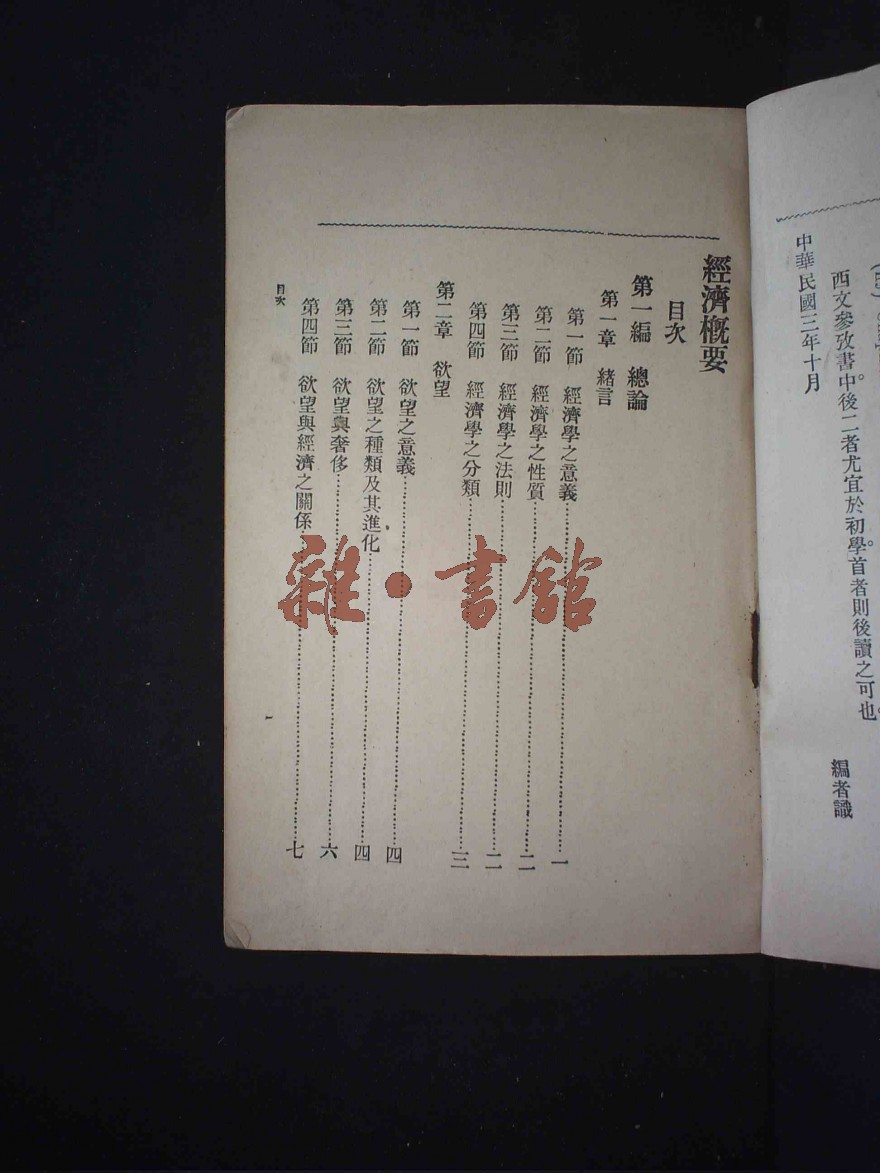 西文參攷書中。後二者尤宜於初學。首者則後讀之可也。
中華民國三年十月
編者識
經濟概要
目次
第一編 總論
第一章 緒言
第一節 經濟學之意義……一
第二節 經濟學之性質……二
第三節 經濟學之法則……二
第四節 經濟學之分類……三
第二章 欲望
第一節 欲望之意義……四
第二節 欲望之種類及其進化……四
第三節 欲望與奢侈……六
第四節 欲望與經濟之關係……七
目次
一
雜·書館